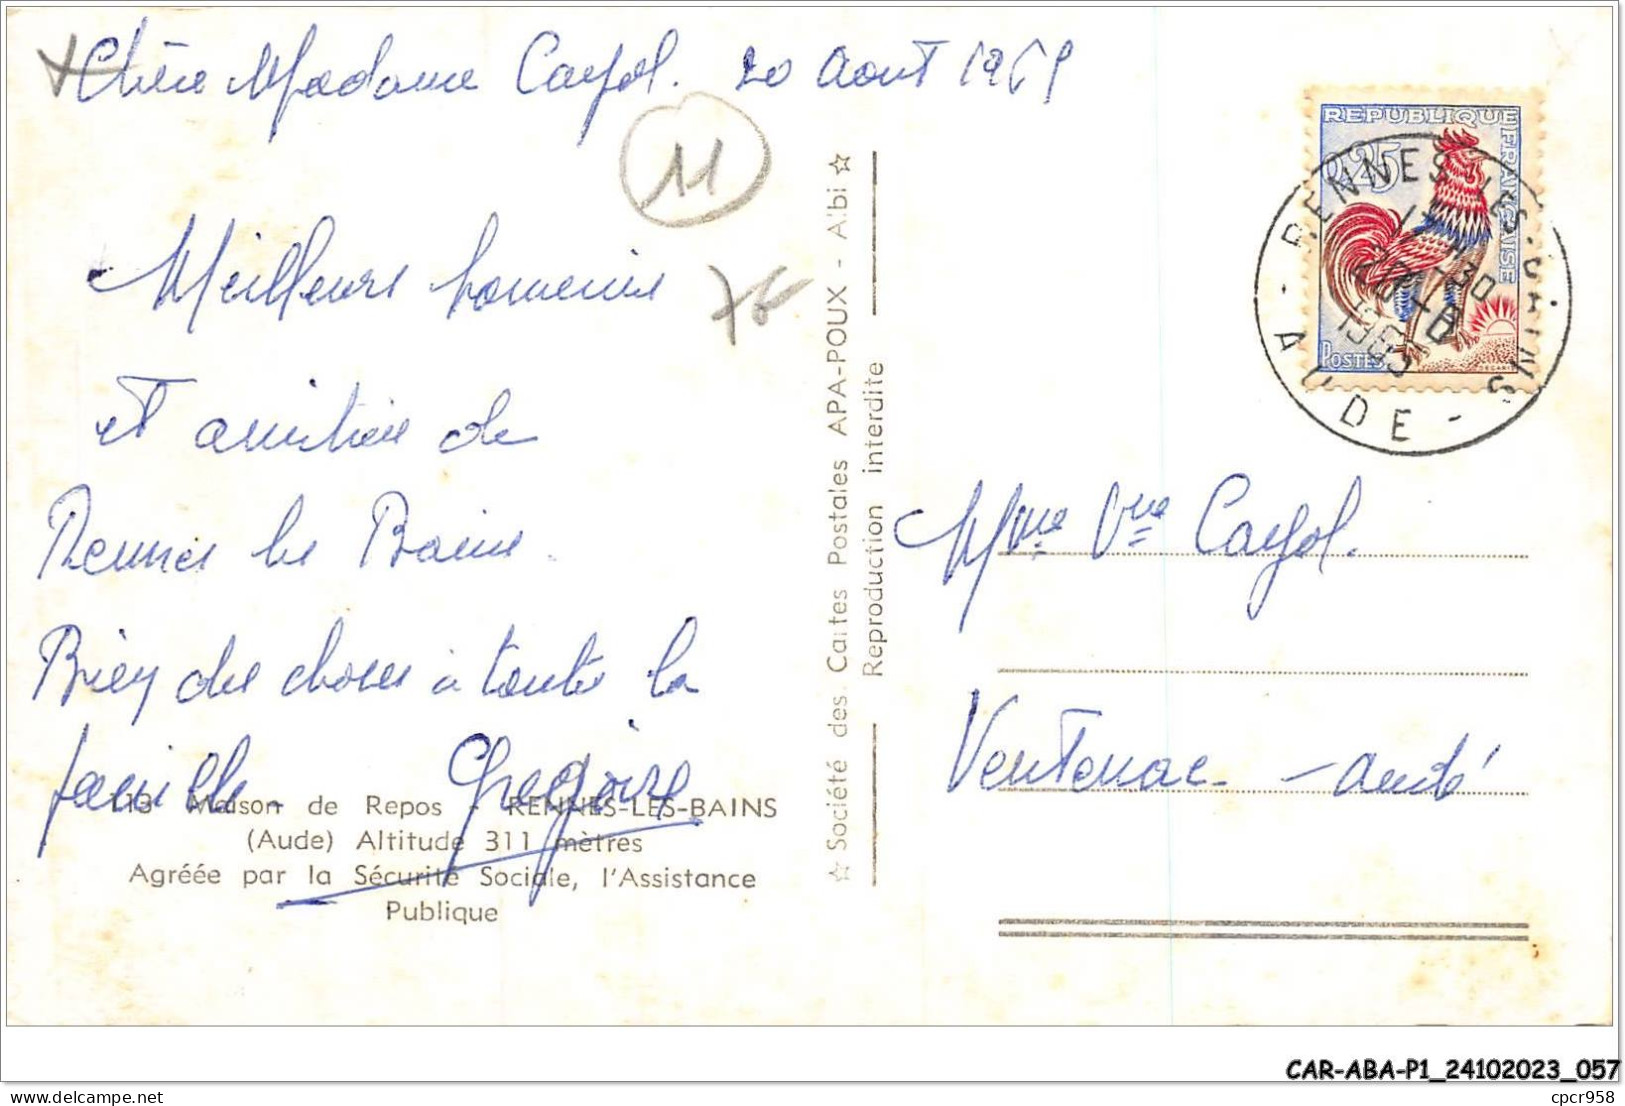 Chère Madame Cayol. 20 Aout 196
11
Meilleurs
76
et amitiés de
Rennes les Bains
Bien des choses à toute la
famille. Gregoire
113 Maison de Repos - RENNES-LES-BAINS
(Aude) Altitude 311 mètres
Agréée par la Sécurité Sociale, l'Assistance
Publique
☆ Société des Cartes Postales APA-POUX - Albi ☆
Reproduction interdite
REPUBLIQUE FRANÇAISE
0,25
POSTES
DECARIS
RENNES-LES-BAINS
17 H 30
20-8
196
- AUDE -
Mme Vve Cayol.
Ventenac - Aude
CAR-ABA-P1_24102023_057
cpcr958